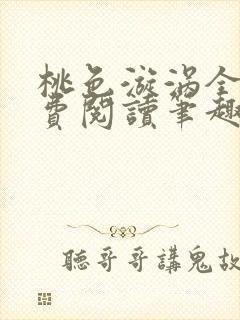 桃色漩涡全
费阅讀筆趣
聽哥哥講鬼故